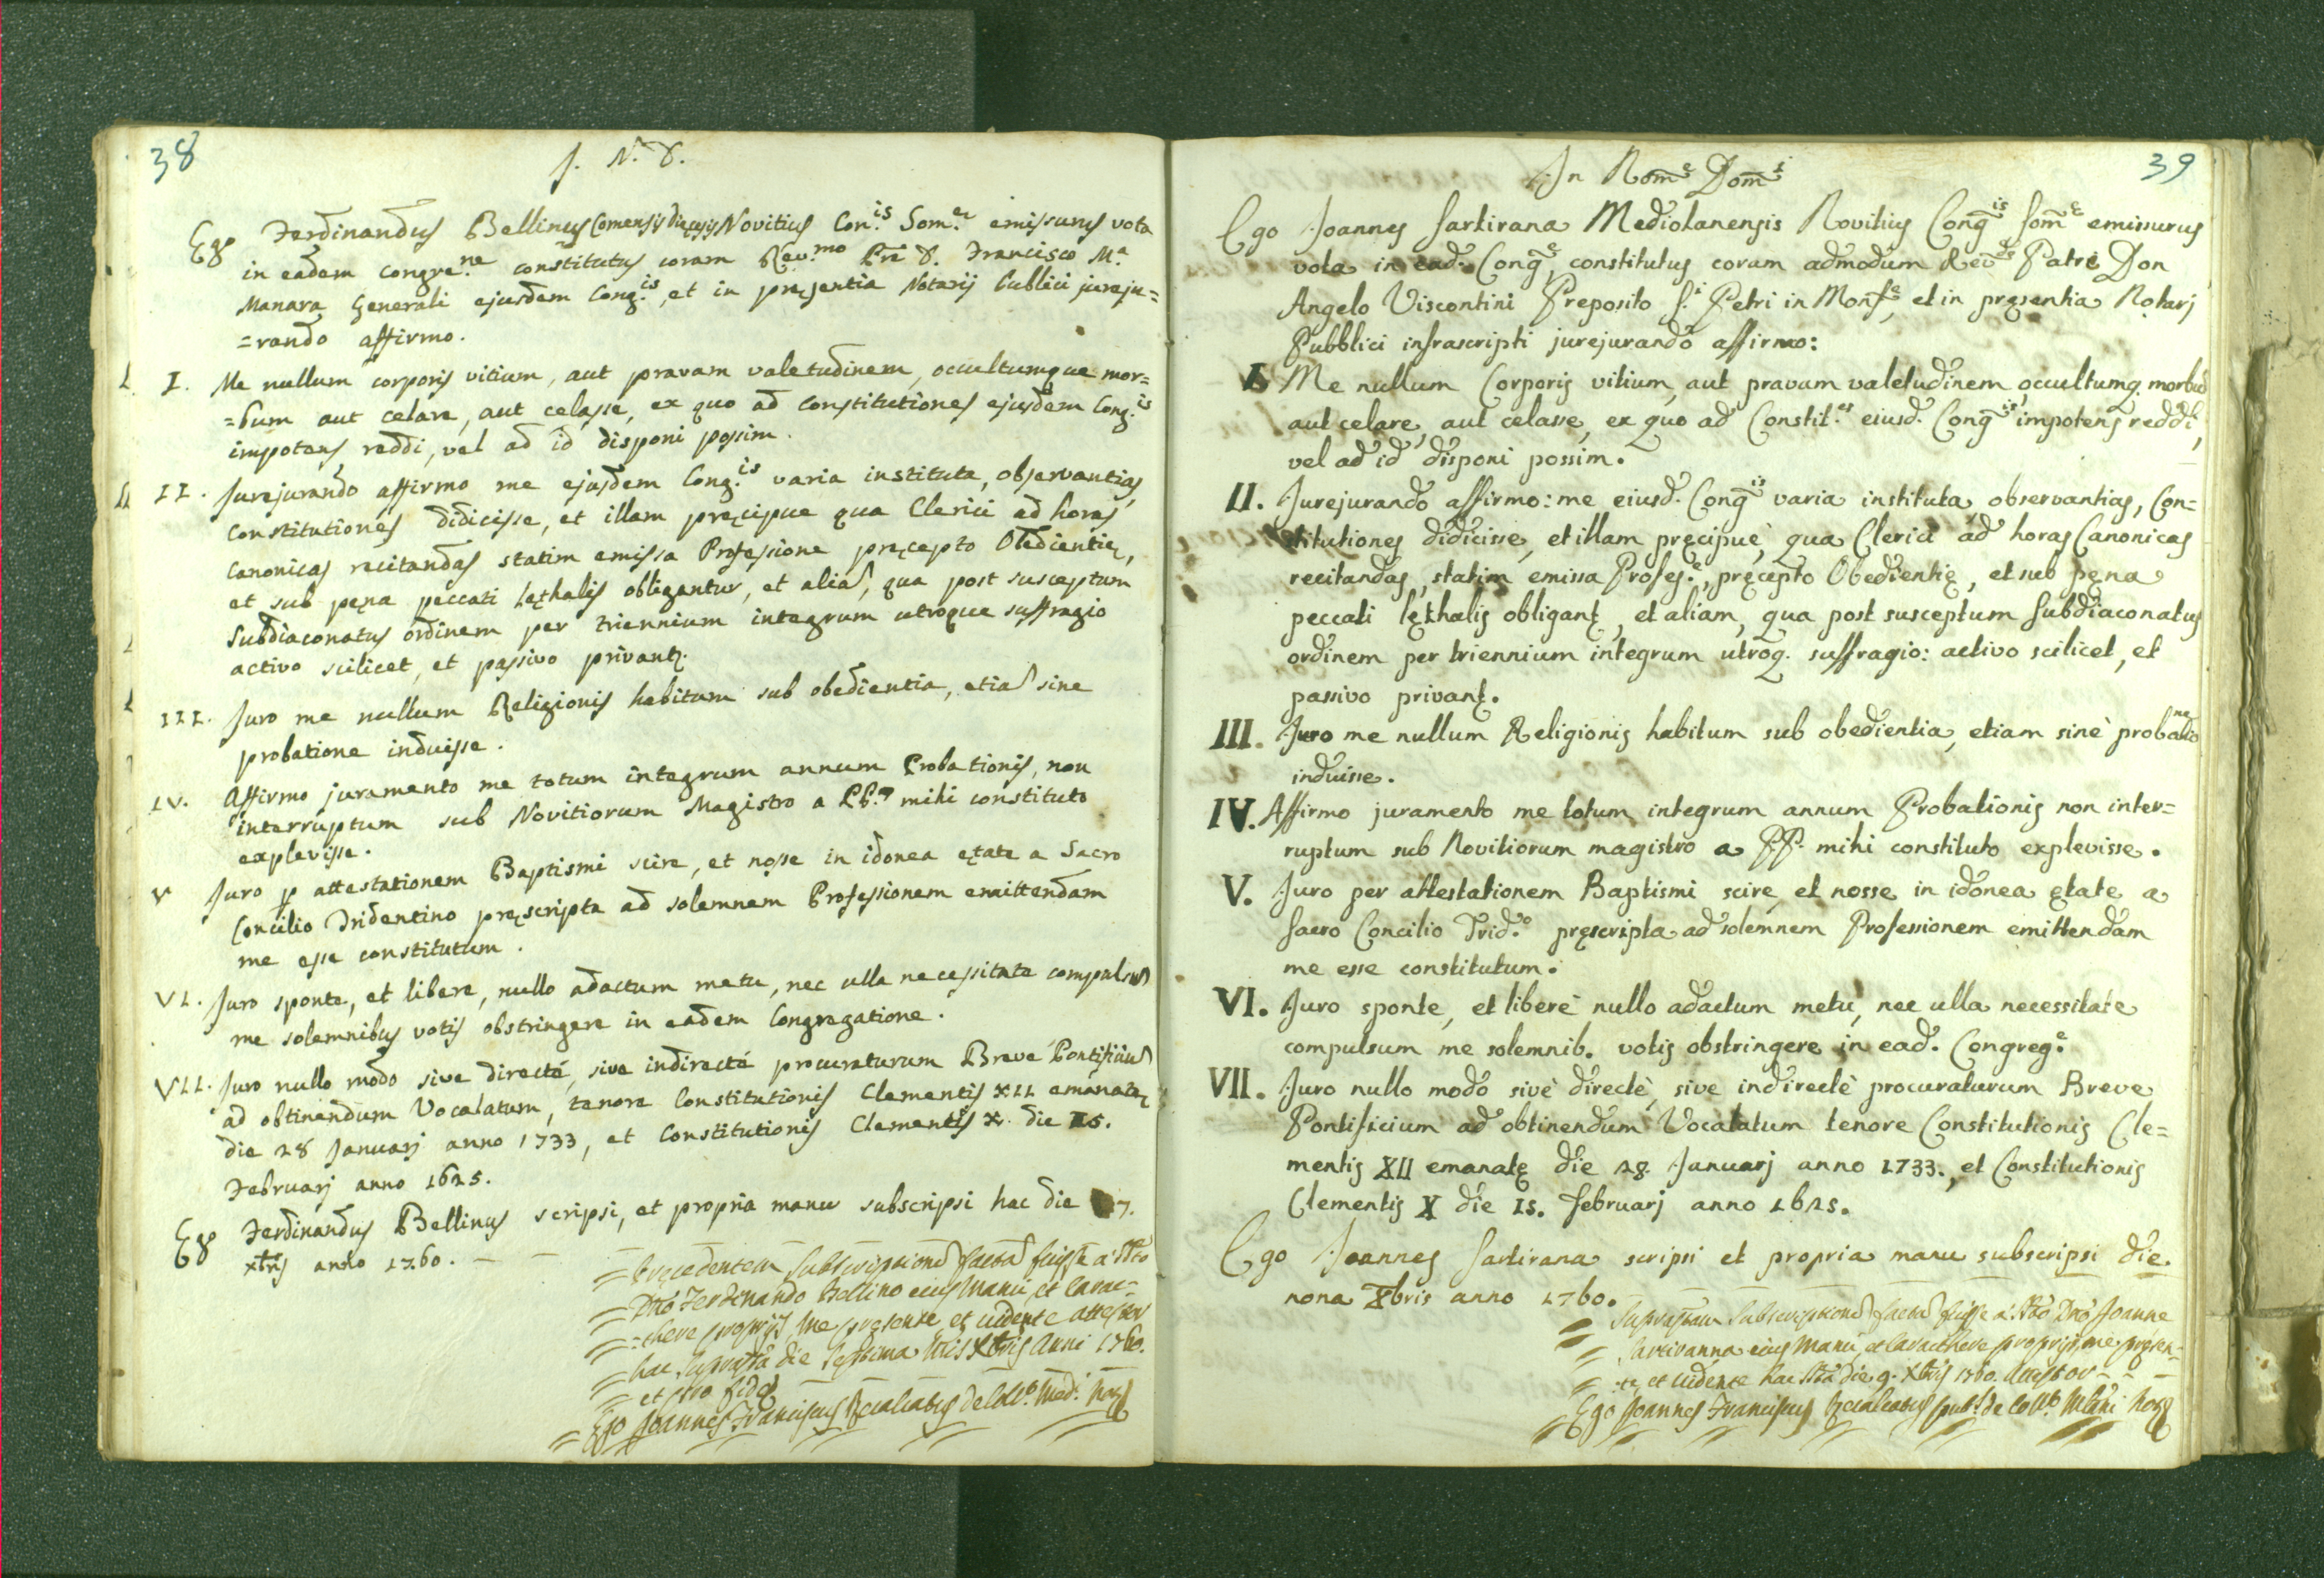 38
J. N. D.
Ego Ferdinandus Bellinus Comensis Dięcesis Novitius Con.is Som.ę emissurus vota
in eadem congre.ne constitutus coram Rev.mo Prē D. Francisco M.a
Manara Generali ejusdem Cong.is, et in pręsentia Notarij Publici jureju=
=rando affirmo.
I. Me nullum corporis vitium, aut pravam valetudinem, occultumque mor=
=bum aut celare, aut celasse, ex quo ad Constitutiones ejusdem Cong.is
impotens reddi, vel ad id disponi possim.
II. Jurejurando affirmo me ejusdem Cong.is varia instituta, observantias,
Constitutiones didicisse, et illam pręcipue qua Clerici ad horas
Canonicas recitandas statim emissa Professione pręcepto Obedientię,
et sub pęna peccati lęthalis obligantur, et alia, qua post susceptum
Subdiaconatus ordinem per triennium integrum utroque suffragio
activo scilicet, et passivo privant.
III. Juro me nullum Religionis habitum sub obedientia, etia sine
probatione induisse.
IV. Affirmo juramento me totum integrum annum Probationis, non
interruptum sub Novitiorum Magistro a mihi constituto
explevisse.
V Juro p attestationem Baptismi scire, et nosse in idonea ętate a Sacro
Concilio Tridentino pręscripta ad solemnem Professionem emittendam
me esse constitutum.
VI. Juro sponte, et libere, nullo adactum metu, nec ulla necessitate compulsu
me solemnibus votis obstringere in eadem Congregatione.
VII. Juro nullo modo sive directé, sive indirecté procuraturum Breve Pontificiu
ad obtinendum Vocalatum, tenore Constitutionis Clementis XII emanatę
die 28 Januarj anno 1733, et Constitutionis Clementis X. die 15.
Februarj anno 1625.
Ego Ferdinandus Bellinus scripsi, et propria manu subscripsi hac die 7.
xbris anno 1760.
= Pręcedentem subscriptione facta fuisse a Stto
= Dno Ferdinando Bellino eius Manu, et Carac=
=there proprijs me pręsente et vidente attestor
= hac suprasta die septima Xbris Anni 1760.
= et pro fide
= Ego Joannes Franciscus de Coll.o Med.i Not
39
In Nom̄e Dom̄i
Ego Joannes Sartirana Mediolanensis Novitius Conḡis Som̄ę emissurus
vota in ead. Conḡe, constitutus coram admodum Rev̄do Patre Don
Angelo Viscontini Preposito S.i Petri in Monf.e, et in pręsentia Notarj
Pubblici infrascripti jurejurando affirmo:
I. Me nullum Corporis vitium, aut pravam valetudinem, occultumq. morbū
aut celare, aut celasse, ex quo ad Constit.es eiusd. Conḡis impotens reddi,
vel ad id disponi possim.
II. Jurejurando affirmo: me eiusd. Conḡis varia instituta observantias, Con=
stitutiones didicisse, et illam pręcipuè, qua Clerici ad horas Canonicas
recitandas, statim emissa Profes.e, pręcepto Obedientię, et sub pęna
peccati lęthalis obligant, et aliam, qua post susceptum Subdiaconatus
ordinem per triennium integrum utroq. suffragio: activo scilicet, et
passivo privant.
III. Juro me nullum Religionis habitum sub obedientia, etiam sinè probatione
induisse.
IV. Affirmo juramento me totum integrum annum Probationis non inter=
ruptum sub Novitiorum magistro a PP. mihi constituto explevisse.
V. Juro per attestationem Baptismi scire, et nosse in idonea ętate a
Sacro Concilio Trid.o pręscripta ad solemnem Professionem emittendam
me esse constitutum.
VI. Juro sponte, et liberè nullo adactum metu, nec ulla necessitate
compulsum me solemnib. votis obstringere in ead. Congreg.e
VII. Juro nullo modo sivè directè, sive indirectè procuraturum Breve
Pontificium ad obtinendum Vocalatum tenore Constitutionis Cle=
mentis XII emanatę die 28. Januarj anno 1733., et Constitutionis
Clementis X die 15. februarj anno 1625.
Ego Joannes Sartirana scripsi et propria manu subscripsi die
nona Xbris anno 1760.
= Suprastam subscriptione facta fuisse a Stto Dno Joanne
= Sartiranna eius Manu, et Caracthere proprijs, me pręsen=
=te, et vidente hac Sta die 9. Xbris 1760. Attestor
= Ego Joannes Franciscus pub. de Coll.o Mlāni Not